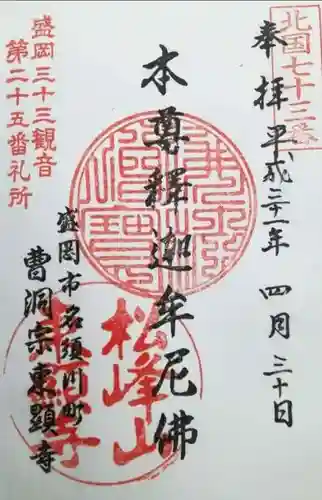 北国七十三番
奉拝 平成三十一年 四月三十日
本尊釋迦牟尼佛
盛岡三十三観音
第二十五番礼所
盛岡市名須川町
曹洞宗東顕寺
松峰山
東顕寺